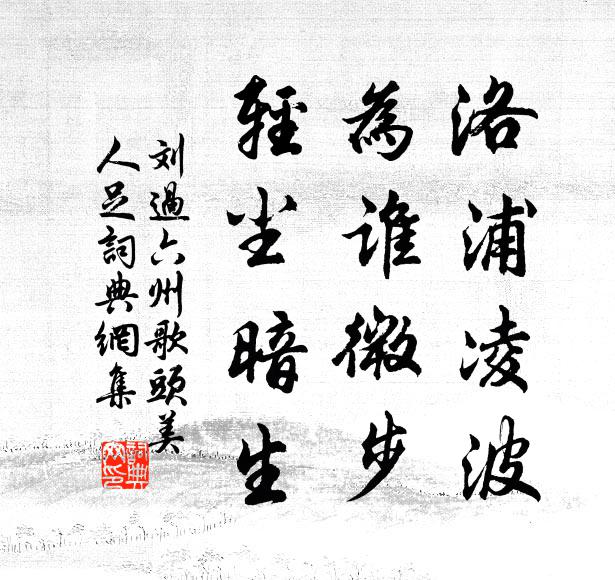 洛浦凌波
為谁微步
輕尘暗生
刘過六州歌頭美
人足詞典網集
詞典